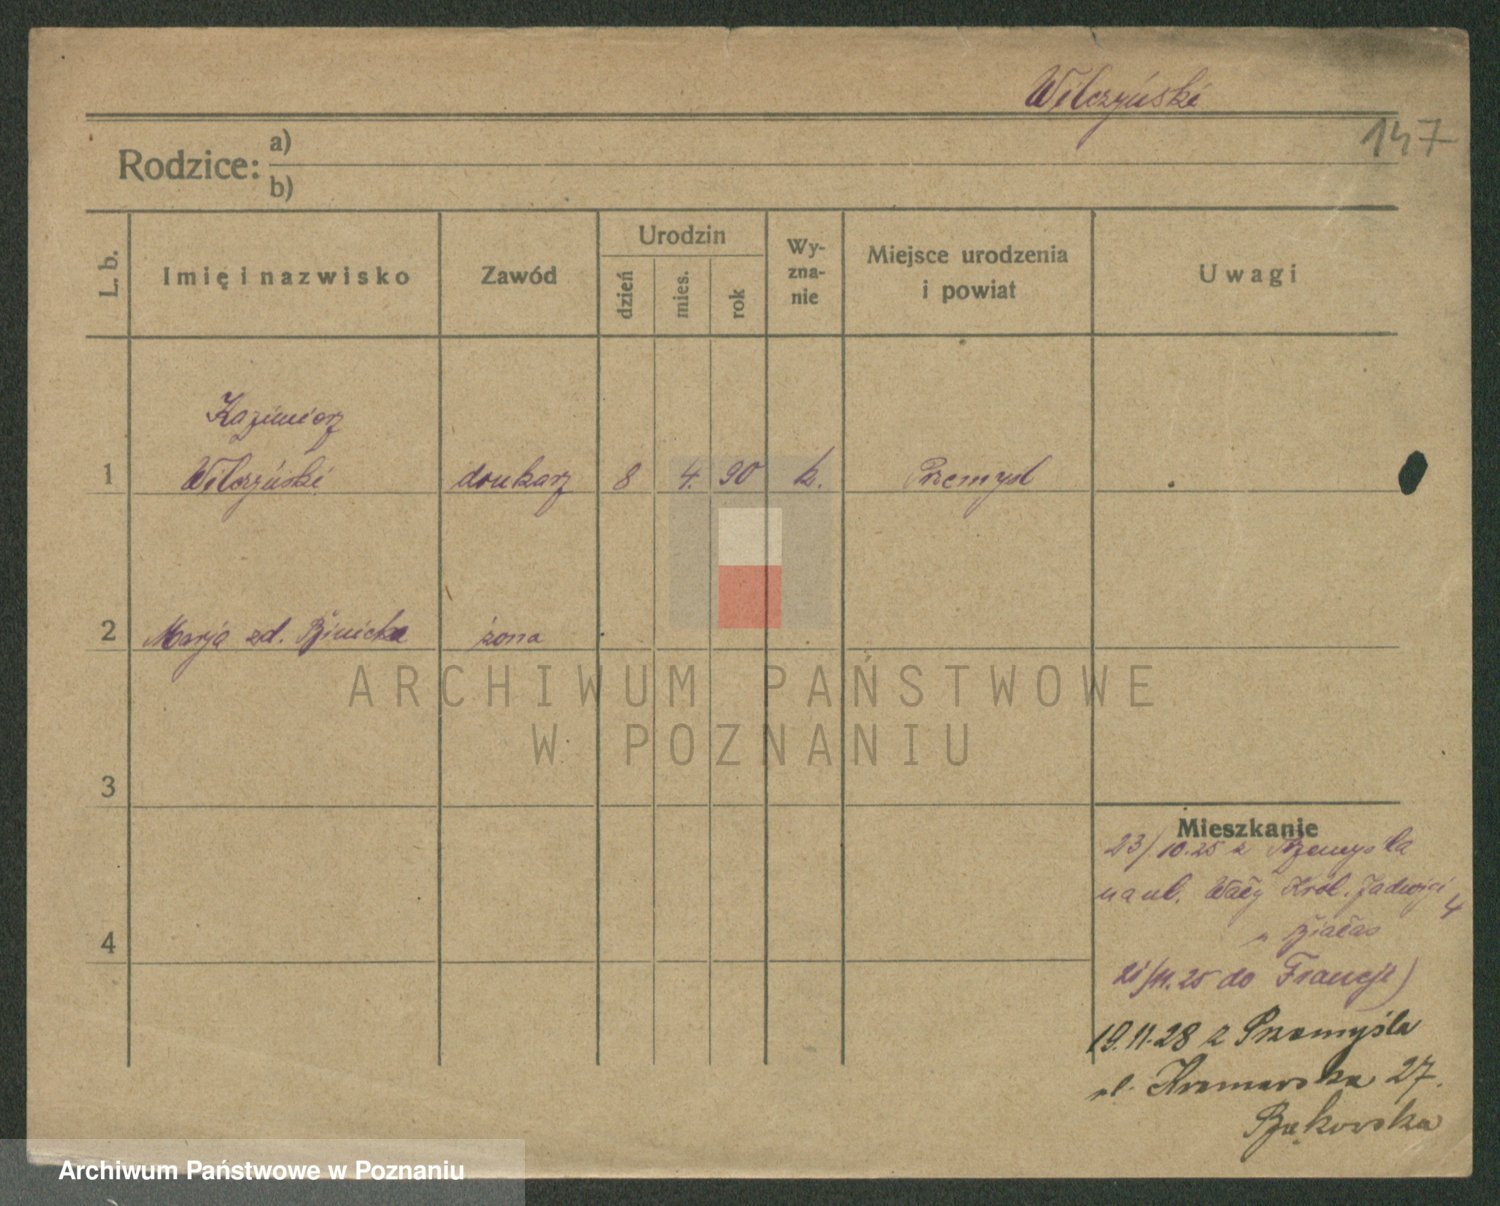 Wilczyński
147
Rodzice: a)
b)
L. b.
Imię i nazwisko
Zawód
Urodzin
dzień
mies.
rok
Wy-
zna-
nie
Miejsce urodzenia
i powiat
Uwagi
Kazimierz
1 Wilczyński drukarz 8 4. 90 k. Przemyśl
2 Marja zd. żona
3
4
Mieszkanie
23/10.25 z Przemyśla
na ul. Wały Król. Jadwigi 4
21/11.25 do Francji)
19.11.28 z Przemyśla
ul. Kramarska 27.
Bąkowska
ARCHIWUM PAŃSTWOWE
W POZNANIU
Archiwum Państwowe w Poznaniu